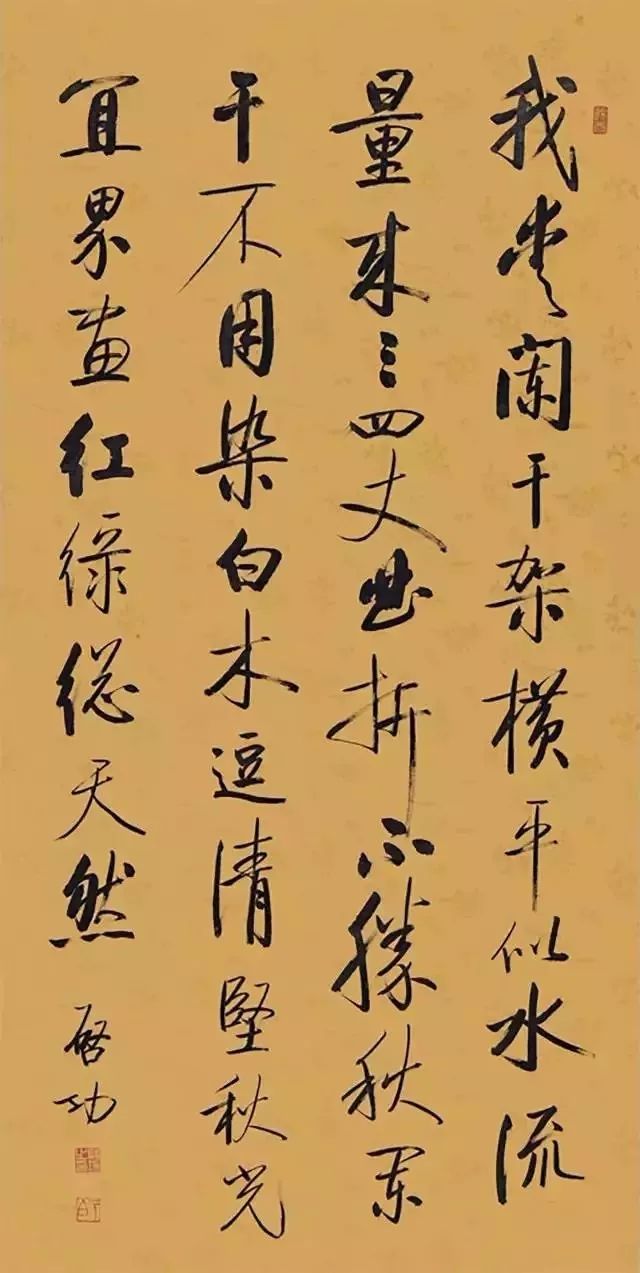 我愛闌干架橫平似水流
量來三四丈曲折不勝秋闌
干不用染白木逗清堅秋光
宜界畫紅綠總天然 啟功